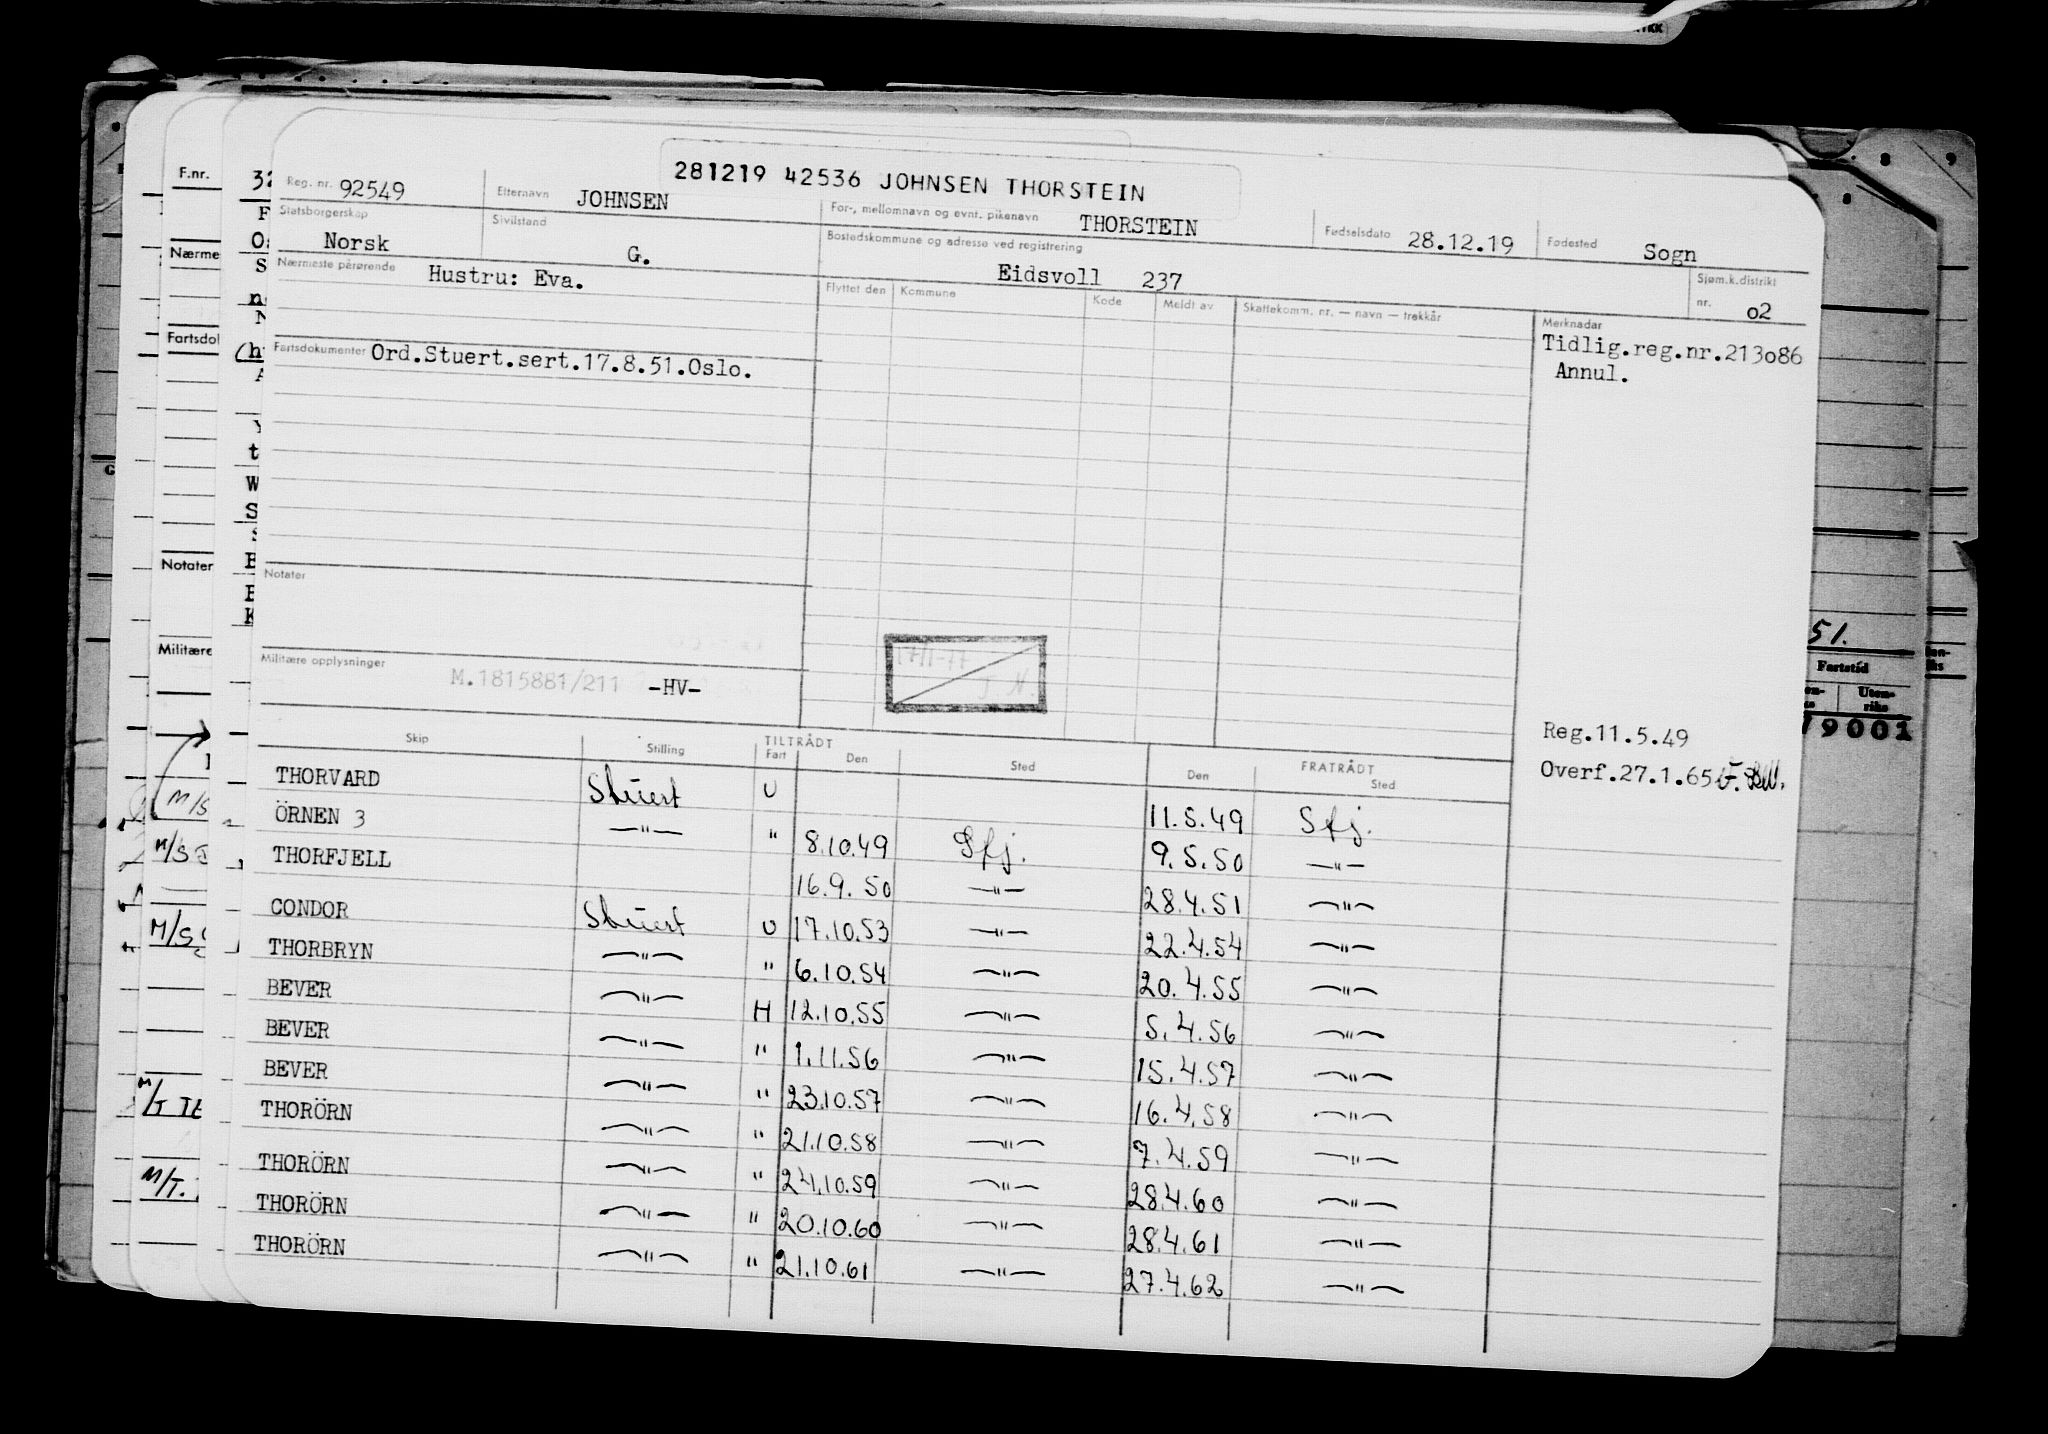 281219 42536 JOHNSEN THORSTEIN
Reg. nr. 92549 Etternavn JOHNSEN For-, mellomnavn og evnt. pikenavn THORSTEIN Fødselsdato 28.12.19 Fødested Sogn
Statsborgerskap Norsk Sivilstand G. Bostedskommune og adresse ved registrering Eidsvoll 237
Sjøm.k.distrikt nr. o2
Nærmeste pårørende Hustru: Eva.
Flyttet den Kommune Kode Meldt av Skattekomm. nr. — navn — trekkår
Merknader
Tidlig.reg.nr.213o86
Annul.
Fartsdokumenter Ord.Stuert.sert.17.8.51.Oslo.
Notater
Militære opplysninger M.1815881/211 -HV-
17/1-77
J.N.
Reg.11.5.49
Overf.27.1.65
Skip Stilling TILTRÅDT Fart Den Sted FRATRÅDT Den Sted
THORVARD Stuert U 11.5.49 Sfj.
ÖRNEN 3 —"— " 8.10.49 Sfj. 9.5.50 —"—
THORFJELL 16.9.50 —"— 28.4.51 —"—
CONDOR Stuert U 17.10.53 —"— 22.4.54 —"—
THORBRYN —"— " 6.10.54 —"— 20.4.55 —"—
BEVER —"— H 12.10.55 —"— 5.4.56 —"—
BEVER —"— " 1.11.56 —"— 15.4.57 —"—
BEVER —"— " 23.10.57 —"— 16.4.58 —"—
THORÖRN —"— " 21.10.58 —"— 7.4.59 —"—
THORÖRN —"— " 24.10.59 —"— 28.4.60 —"—
THORÖRN —"— " 20.10.60 —"— 28.4.61 —"—
THORÖRN —"— " 21.10.61 —"— 27.4.62 —"—
F.nr.
Nærme
Fartsdol
Notater
Militære
M/S
M/S
M/S
M/T
M/T.
8 9
8
51.
Fartstid
Uten-
riks
9001